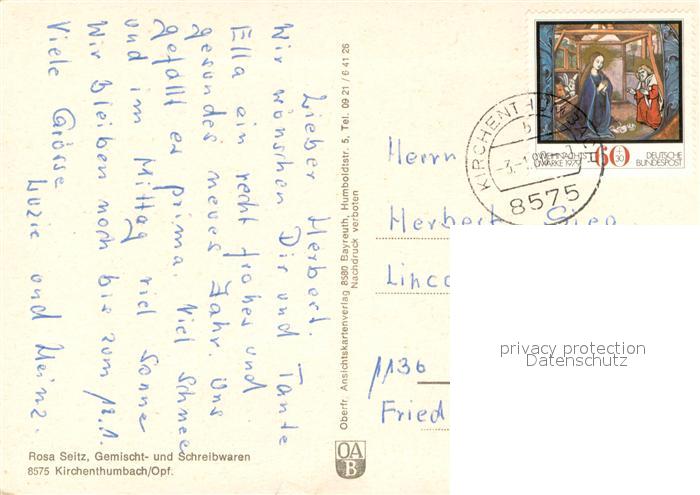 Lieber Herbert,
Wir wünschen Dir und Tante
Ella ein recht frohes und
gesundes neues Jahr. Uns
gefällt es prima. Viel Schnee
und im Mittag viel Sonne
Wir bleiben noch bis zum 12.1.
Viele Grüsse
Luzie und Heinz.
Rosa Seitz, Gemischt- und Schreibwaren
8575 Kirchenthumbach/Opf.
Oberfr. Ansichtskartenverlag 8580 Bayreuth, Humboldtstr. 5, Tel. 09 21 / 6 41 26
Nachdruck verboten
OA
B
WEIHNACHTS
MARKE 1979
60
+30
DEUTSCHE
BUNDESPOST
KIRCHENTHUMBACH
8575
Herrn
Herbert
1136
Fried
privacy protection
Datenschutz